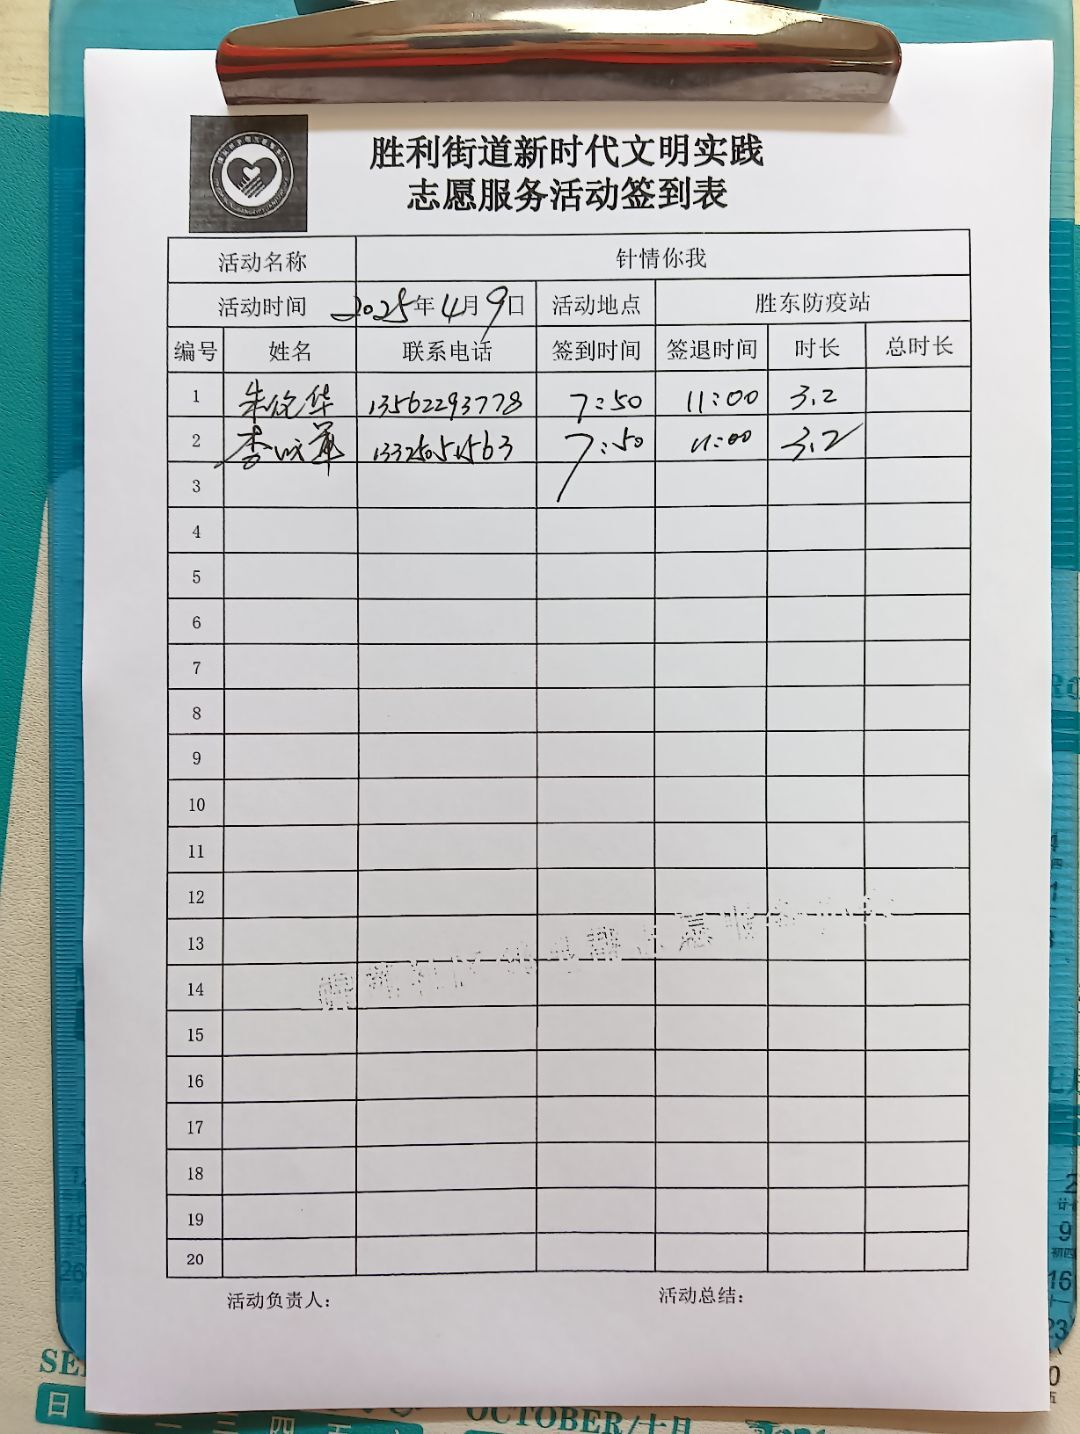 胜利街道新时代文明实践
志愿服务活动签到表
活动名称 针情你我
活动时间 2025年4月9日 活动地点 胜东防疫站
编号 姓名 联系电话 签到时间 签退时间 时长 总时长
1 朱 华 13562293778 7:50 11:00 3.2
2 李 7:50 11:00 3.2
3
4
5
6
7
8
9
10
11
12
13
14
15
16
17
18
19
20
活动负责人: 活动总结:
日 一 三 四 五
OCTOBER/十月